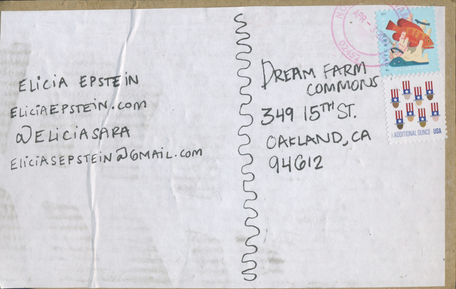 ELICIA EPSTEIN
ELICIAEPSTEIN.COM
@ELICIASARA
ELICIASEPSTEIN@GMAIL.COM
DREAM FARM
COMMONS
349 15TH ST.
OAKLAND, CA
94612
ADDITIONAL OUNCE USA